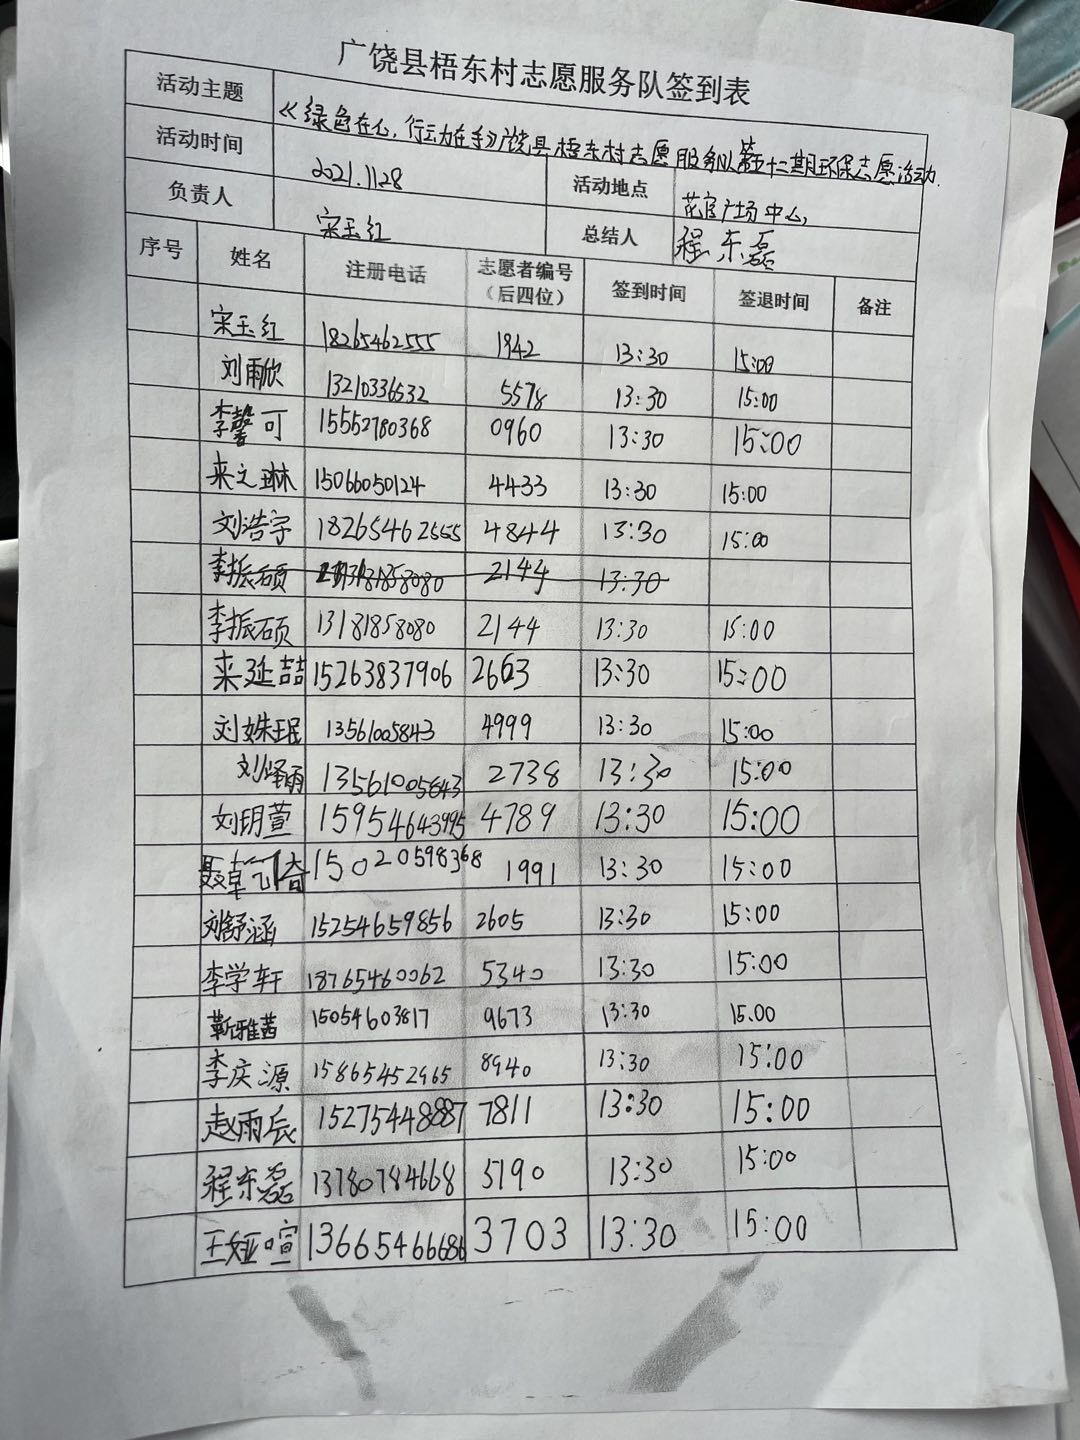 广饶县梧东村志愿服务队签到表
活动主题 《绿色在心，行动在手》广饶县梧东村志愿服务队第五十二期环保志愿活动.
活动时间 2021.1128 活动地点 花官广场中心
负责人 宋玉红 总结人 程东磊
序号 姓名 注册电话 志愿者编号（后四位） 签到时间 签退时间 备注
宋玉红 18265462555 1942 13:30 15:00
刘雨欣 13210336532 5578 13:30 15:00
李馨可 15552780368 0960 13:30 15:00
来之琳 15066050124 4433 13:30 15:00
刘浩宇 18265462555 4844 13:30 15:00
李振硕 13181858080 2144 13:30
李振硕 13181858080 2144 13:30 15:00
来延喆 15263837906 2663 13:30 15:00
刘姝珉 13561005843 4999 13:30 15:00
刘烨雨 13561005843 2738 13:30 15:00
刘玥萱 15954643995 4789 13:30 15:00
聂卓 15020598368 1991 13:30 15:00
刘舒涵 15254659856 2605 13:30 15:00
李学轩 18765460062 5340 13:30 15:00
靳雅茜 15054603817 9673 13:30 15.00
李庆源 15865452965 8940 13:30 15:00
赵雨辰 15275448887 7811 13:30 15:00
程东磊 13780784668 5190 13:30 15:00
王娅喧 13665466686 3703 13:30 15:00